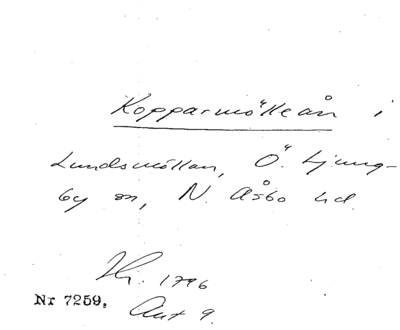 Kopparmöllean i
Lundsmöllan, Ö. Ljung-
by sn, N. Åsbo hd.
1796
Nr 7259. Akt 9.